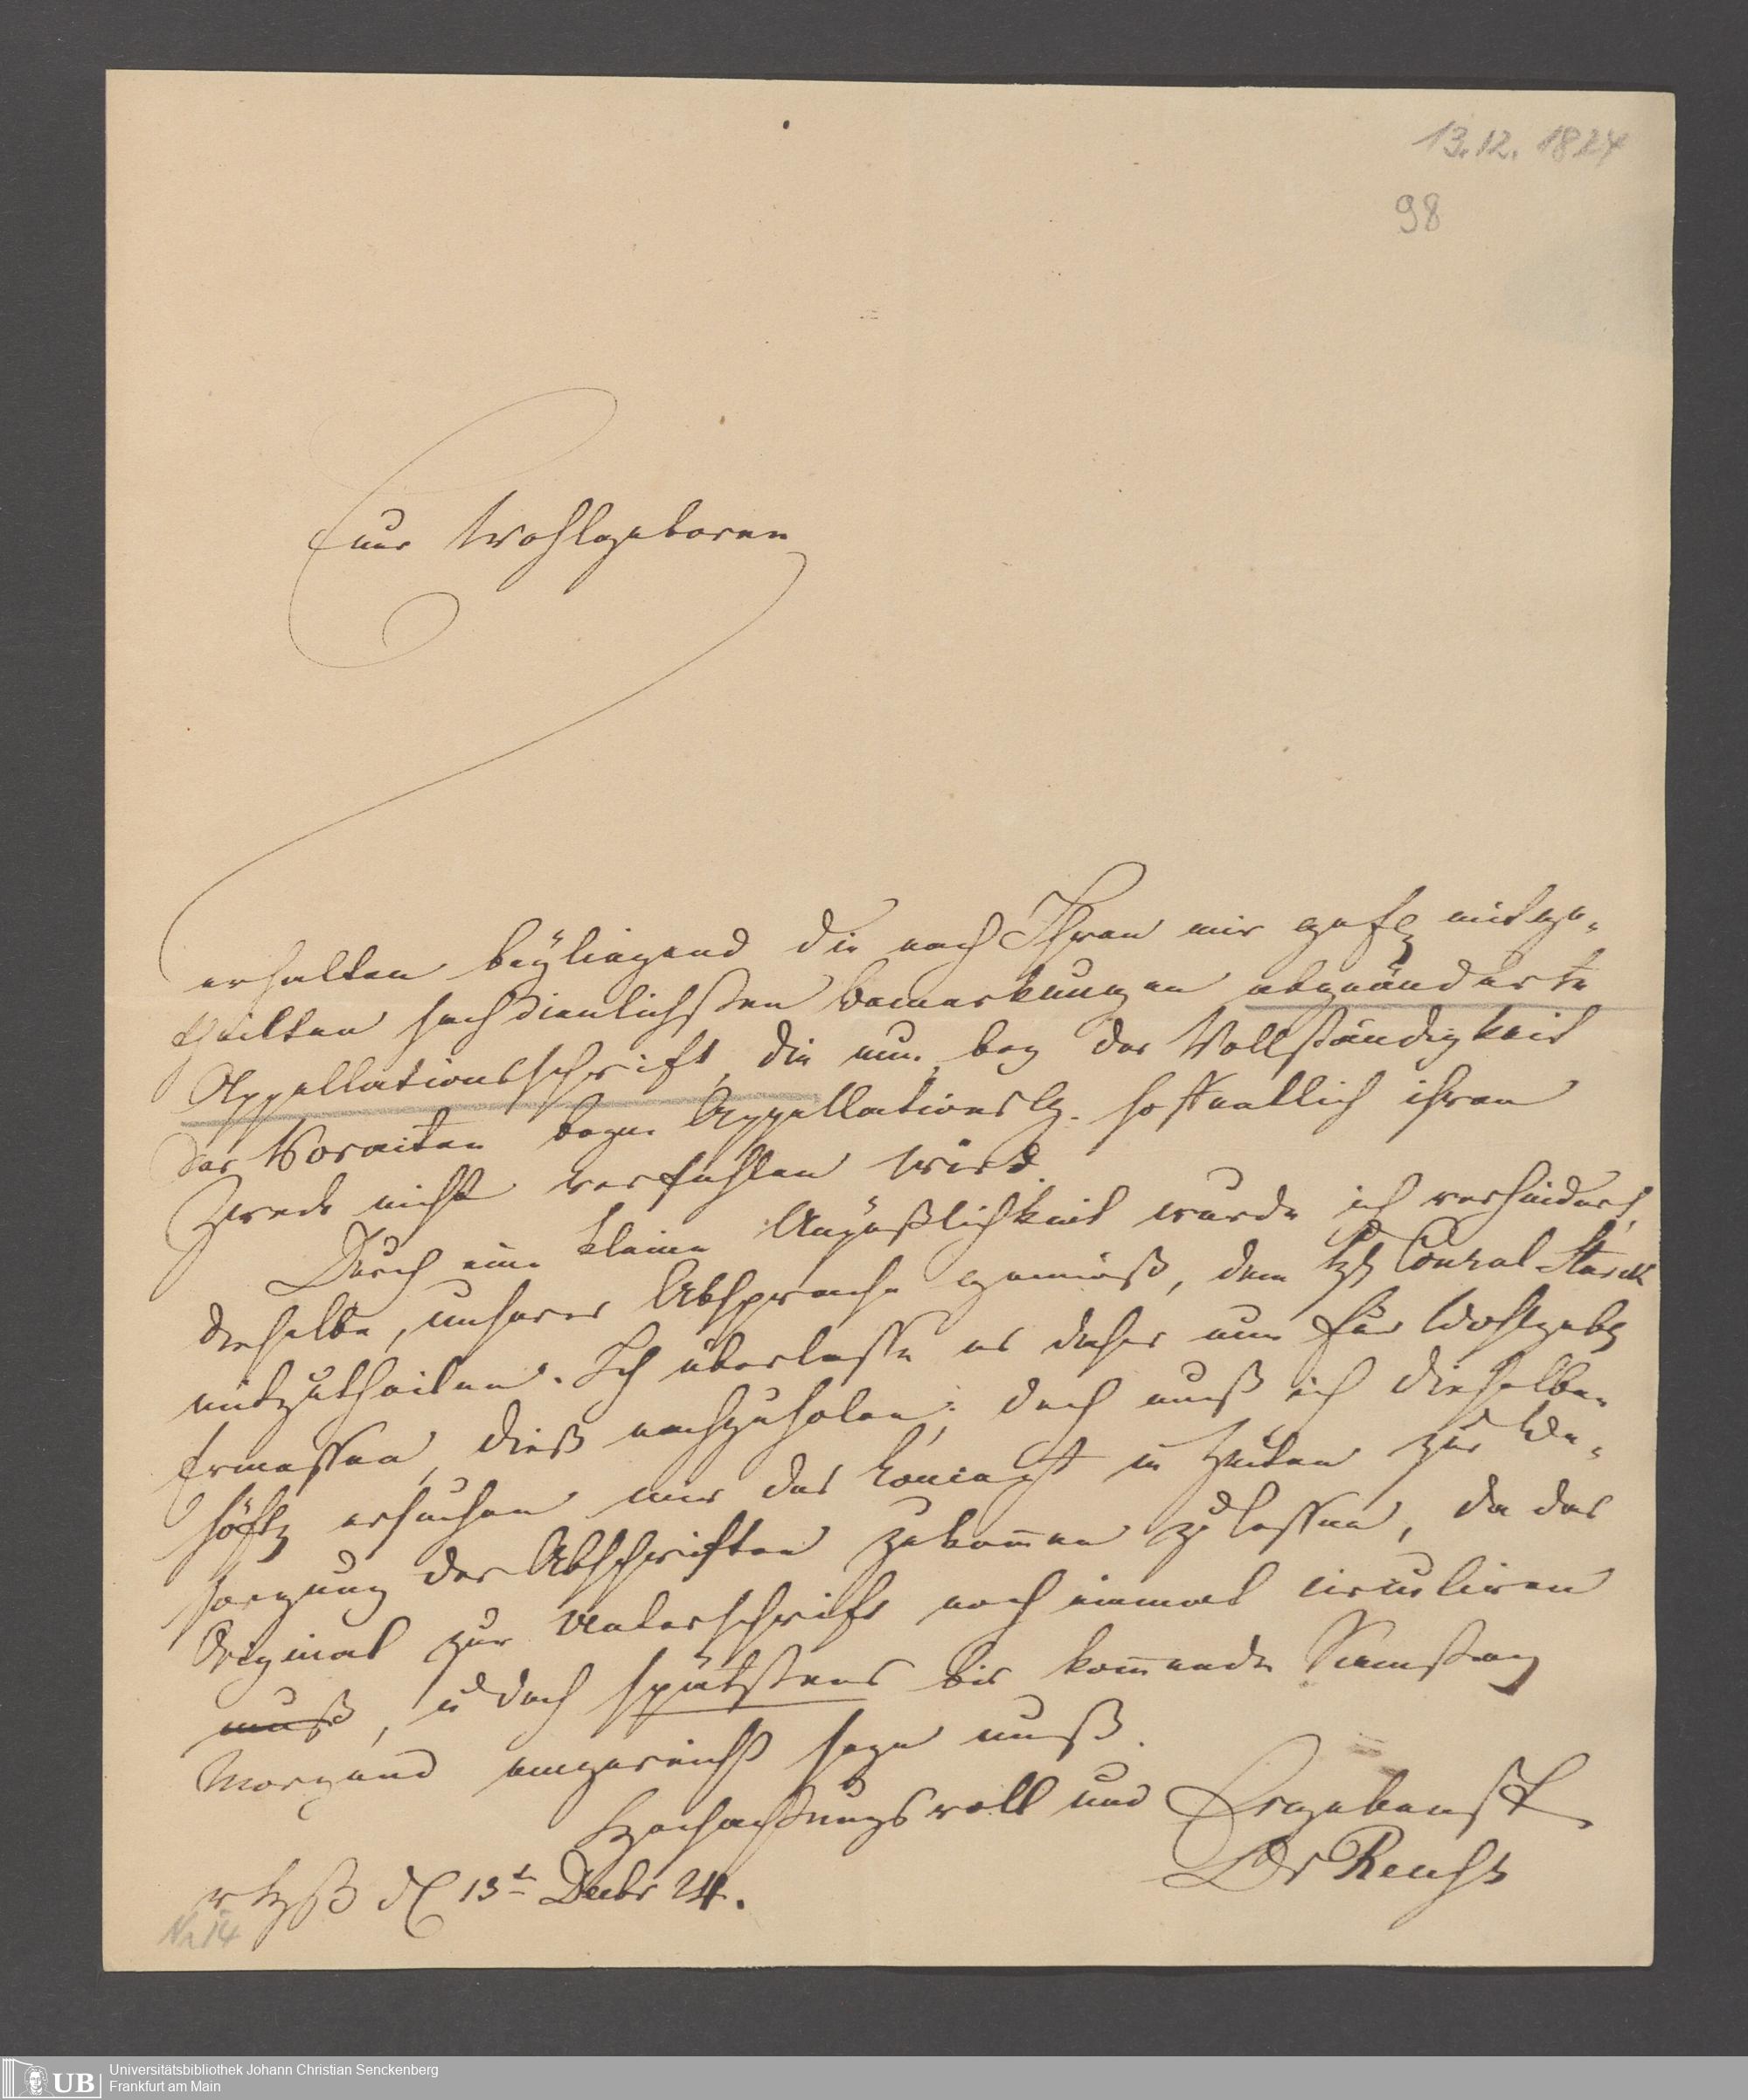 13.12. 1824
98
Euer Wohlgeboren
erhalten beÿliegend die nach Ihren mir gefl mitge-
theilten sachdienlichsten Bemerkungen abgeänderte
Appellationsschrift, die nun bey der Vollständigkeit
der hoffentlich ihren
Zweck nicht verfehlen wird.
Durch eine kleine Unpäßlichkeit wurde ich verhindert,
dieselbe, unserer Absprache gemäß, dem Consul Starck
mitzutheilen. Ich überlasse es daher nun Euer Wohlgeb
Ermessen, dieß nachzuholen; doch muß ich dieselben
höfl ersuchen mir das Concept in Zeiten zur Be-
sorgung der Abschriften zukomen zu lassen, da das
Original zur Unterschrift noch einmal circuliren
muß, u doch spätstens bis komende Samstag
Morgend eingereicht seyn muß.
Hochachtungsvoll und Ergebenst
13t Decbr 24.
Nr 14
Universitätsbibliothek Johann Christian Senckenberg
UB Frankfurt am Main